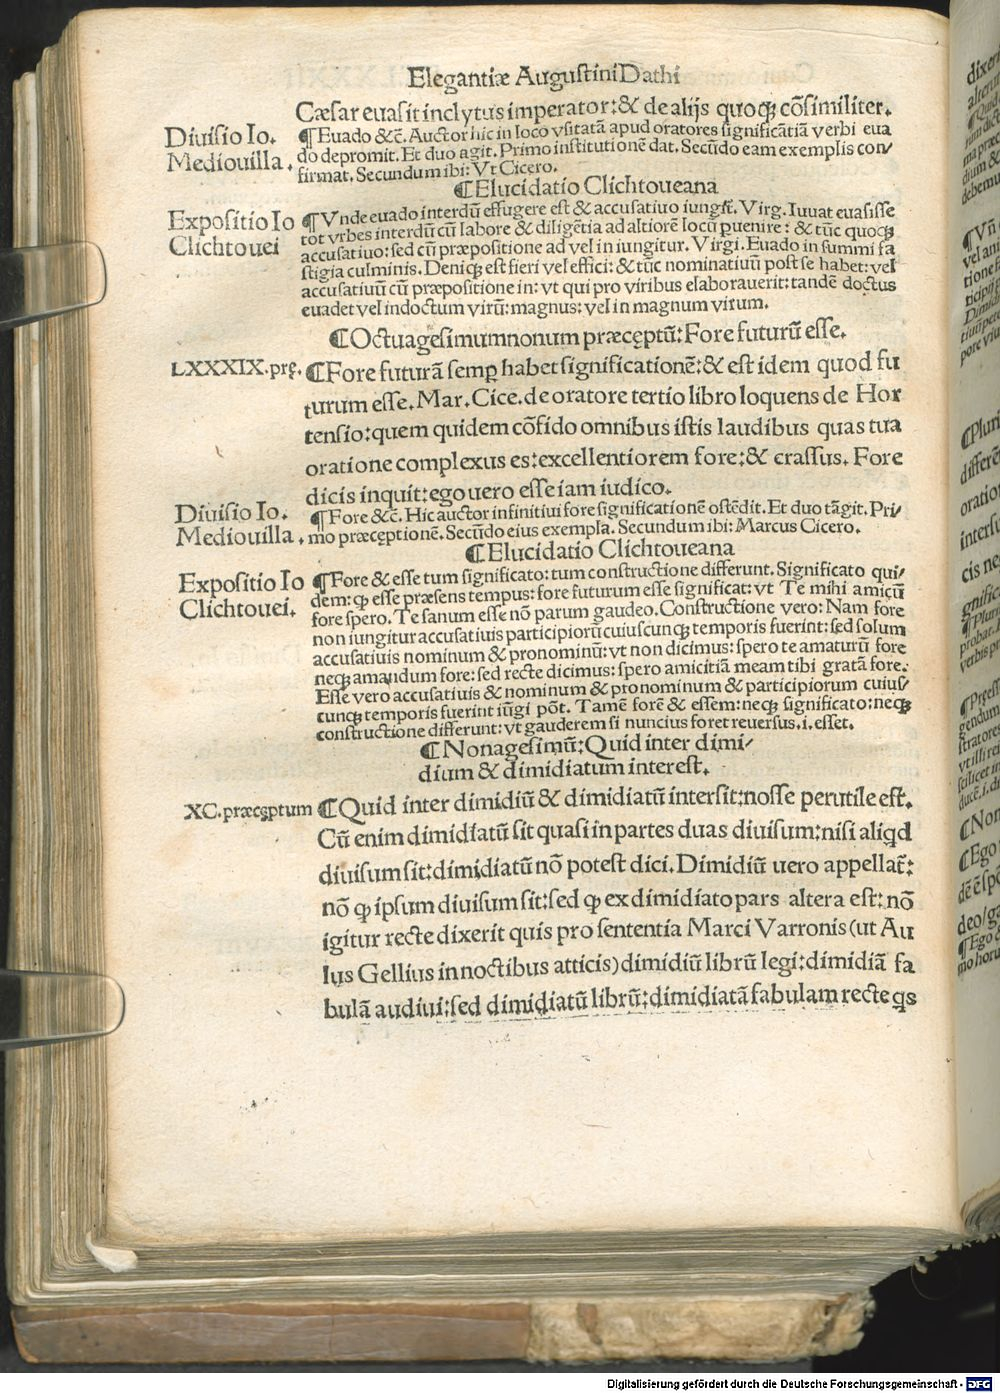 Elegantiæ Augustini Dathi
Cæsar euasit inclytus imperator: & de alijs quoqꝫ cõsimiliter.
Diuisio Io.
Mediouilla.
¶Euado &c̃. Auctor hic in loco vsitatã apud oratores significãtiã verbi eua
do depromit. Et duo agit. Primo institutionẽ dat. Secũdo eam exemplis con/
firmat. Secundum ibi: Vt Cicero.
¶Elucidatio Clichtoueana
Expositio Io
Clichtouei
¶Vnde euado interdũ effugere est & accusatiuo iungit̃. Virg. Iuuat euasisse
tot vrbes interdũ cũ labore & diligẽtia ad altiorẽ locũ puenire: & tũc quoqꝫ
accusatiuo: sed cũ præpositione ad vel in iungitur. Virgi. Euado in summi fa
stigia culminis. Deniqꝫ est fieri vel effici: & tũc nominatiuũ post se habet: vel
accusatiuũ cũ præpositione in: vt qui pro viribus elaborauerit: tandẽ doctus
euadet vel indoctum virũ: magnus: vel in magnum virum.
¶Octuagesimumnonum præceptũ: Fore futurũ esse.
LXXXIX. prę.
¶Fore futurã semꝑ habet significationẽ: & est idem quod fu
turum esse. Mar. Cice. de oratore tertio libro loquens de Hor
tensio: quem quidem cõfido omnibus istis laudibus quas tua
oratione complexus es: excellentiorem fore: & crassus. Fore
dicis inquit: ego uero esse iam iudico.
Diuisio Io.
Mediouilla.
¶Fore &c̃. Hic auctor infinitiui fore significationẽ ostẽdit. Et duo tãgit. Pri/
mo præceptionẽ. Secũdo eius exempla. Secundum ibi: Marcus Cicero.
¶Elucidatio Clichtoueana
Expositio Io
Clichtouei.
¶Fore & esse tum significato: tum constructione differunt. Significato qui/
dem: ꝙ esse præsens tempus: fore futurum esse significat: vt Te mihi amicũ
fore spero. Te sanum esse nõ parum gaudeo. Constructione vero: Nam fore
non iungitur accusatiuis participiorũ cuiuscunqꝫ temporis fuerint: sed solum
accusatiuis nominum & pronominũ: vt non dicimus: spero te amaturũ fore
neqꝫ amandum fore: sed recte dicimus: spero amicitiã meam tibi gratã fore.
Esse vero accusatiuis & nominum & pronominum & participiorum cuius/
cunqꝫ temporis fuerint iũgi põt. Tamẽ forẽ & essem: neqꝫ significato: neqꝫ
constructione differunt: vt gauderem si nuncius foret reuersus .i. esset.
¶Nonagesimũ: Quid inter dimi/
dium & dimidiatum interest.
XC. præceptum
¶Quid inter dimidiũ & dimidiatũ intersit: nosse perutile est.
Cũ enim dimidiatũ sit quasi in partes duas diuisum: nisi aliqd
diuisum sit: dimidiatũ nõ potest dici. Dimidiũ uero appellat̃:
nõ ꝙ ipsum diuisum sit: sed ꝙ ex dimidiato pars altera est: nõ
igitur recte dixerit quis pro sententia Marci Varronis (ut Au
lus Gellius in noctibus atticis) dimidiũ librũ legi: dimidiã fa
bulã audiui: sed dimidiatũ librũ: dimidiatã fabulam recte qs
Digitalisierung gefördert durch die Deutsche Forschungsgemeinschaft - DFG